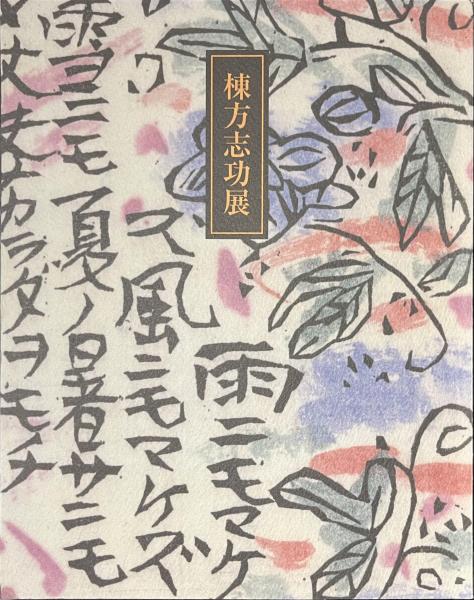 棟方志功展
雨ニモマケ
ズ風ニモマケズ
雪ニモ夏ノ暑サニモ
丈夫ナカラダヲモチ